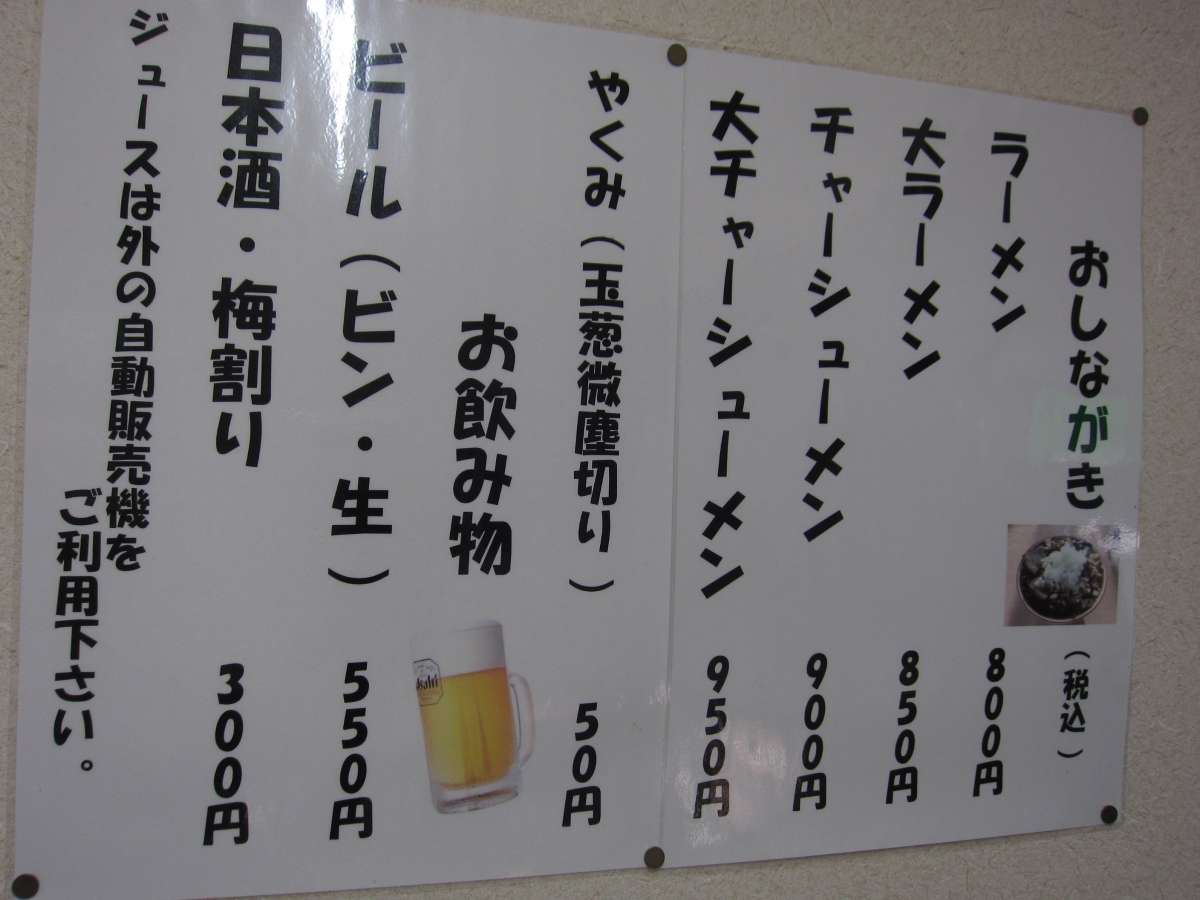 おしながき（税込）
ラーメン 800円
大ラーメン 850円
チャーシューメン 900円
大チャーシューメン 950円
やくみ（玉葱微塵切り） 50円
お飲み物
Asahi
ビール（ビン・生） 550円
日本酒・梅割り 300円
ジュースは外の自動販売機を
ご利用下さい。